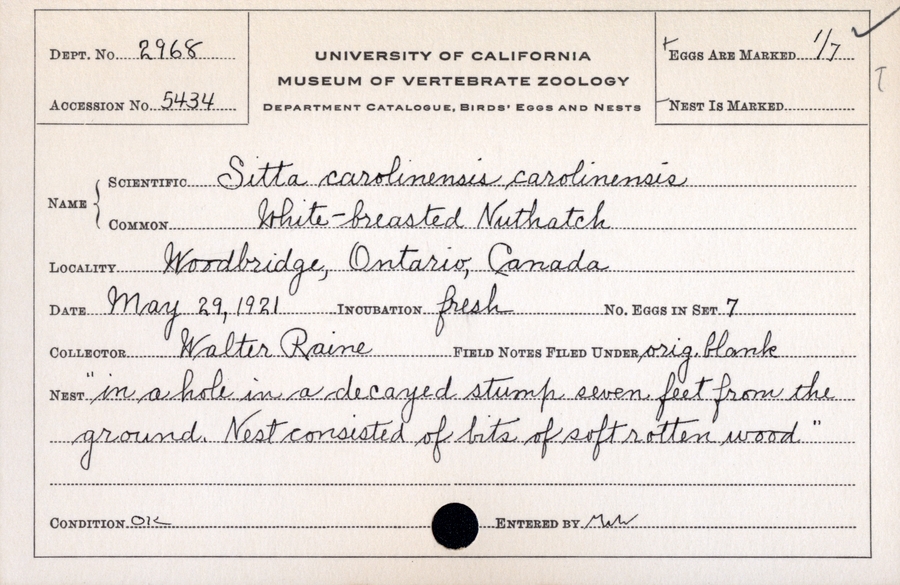 Dept. No. 2968
Accession No. 5434
UNIVERSITY OF CALIFORNIA
MUSEUM OF VERTEBRATE ZOOLOGY
Department Catalogue, Birds' Eggs and Nests
Eggs Are Marked 1/7
Nest Is Marked
Name
Scientific Sitta carolinensis carolinensis
Common White-breasted Nuthatch
Locality Woodbridge, Ontario, Canada
Date May 29, 1921 Incubation fresh No. Eggs in Set 7
Collector Walter Raine Field Notes Filed Under orig. blank
Nest "in a hole in a decayed stump seven feet from the
ground. Nest consisted of bits of soft rotten wood"
Condition OK Entered by